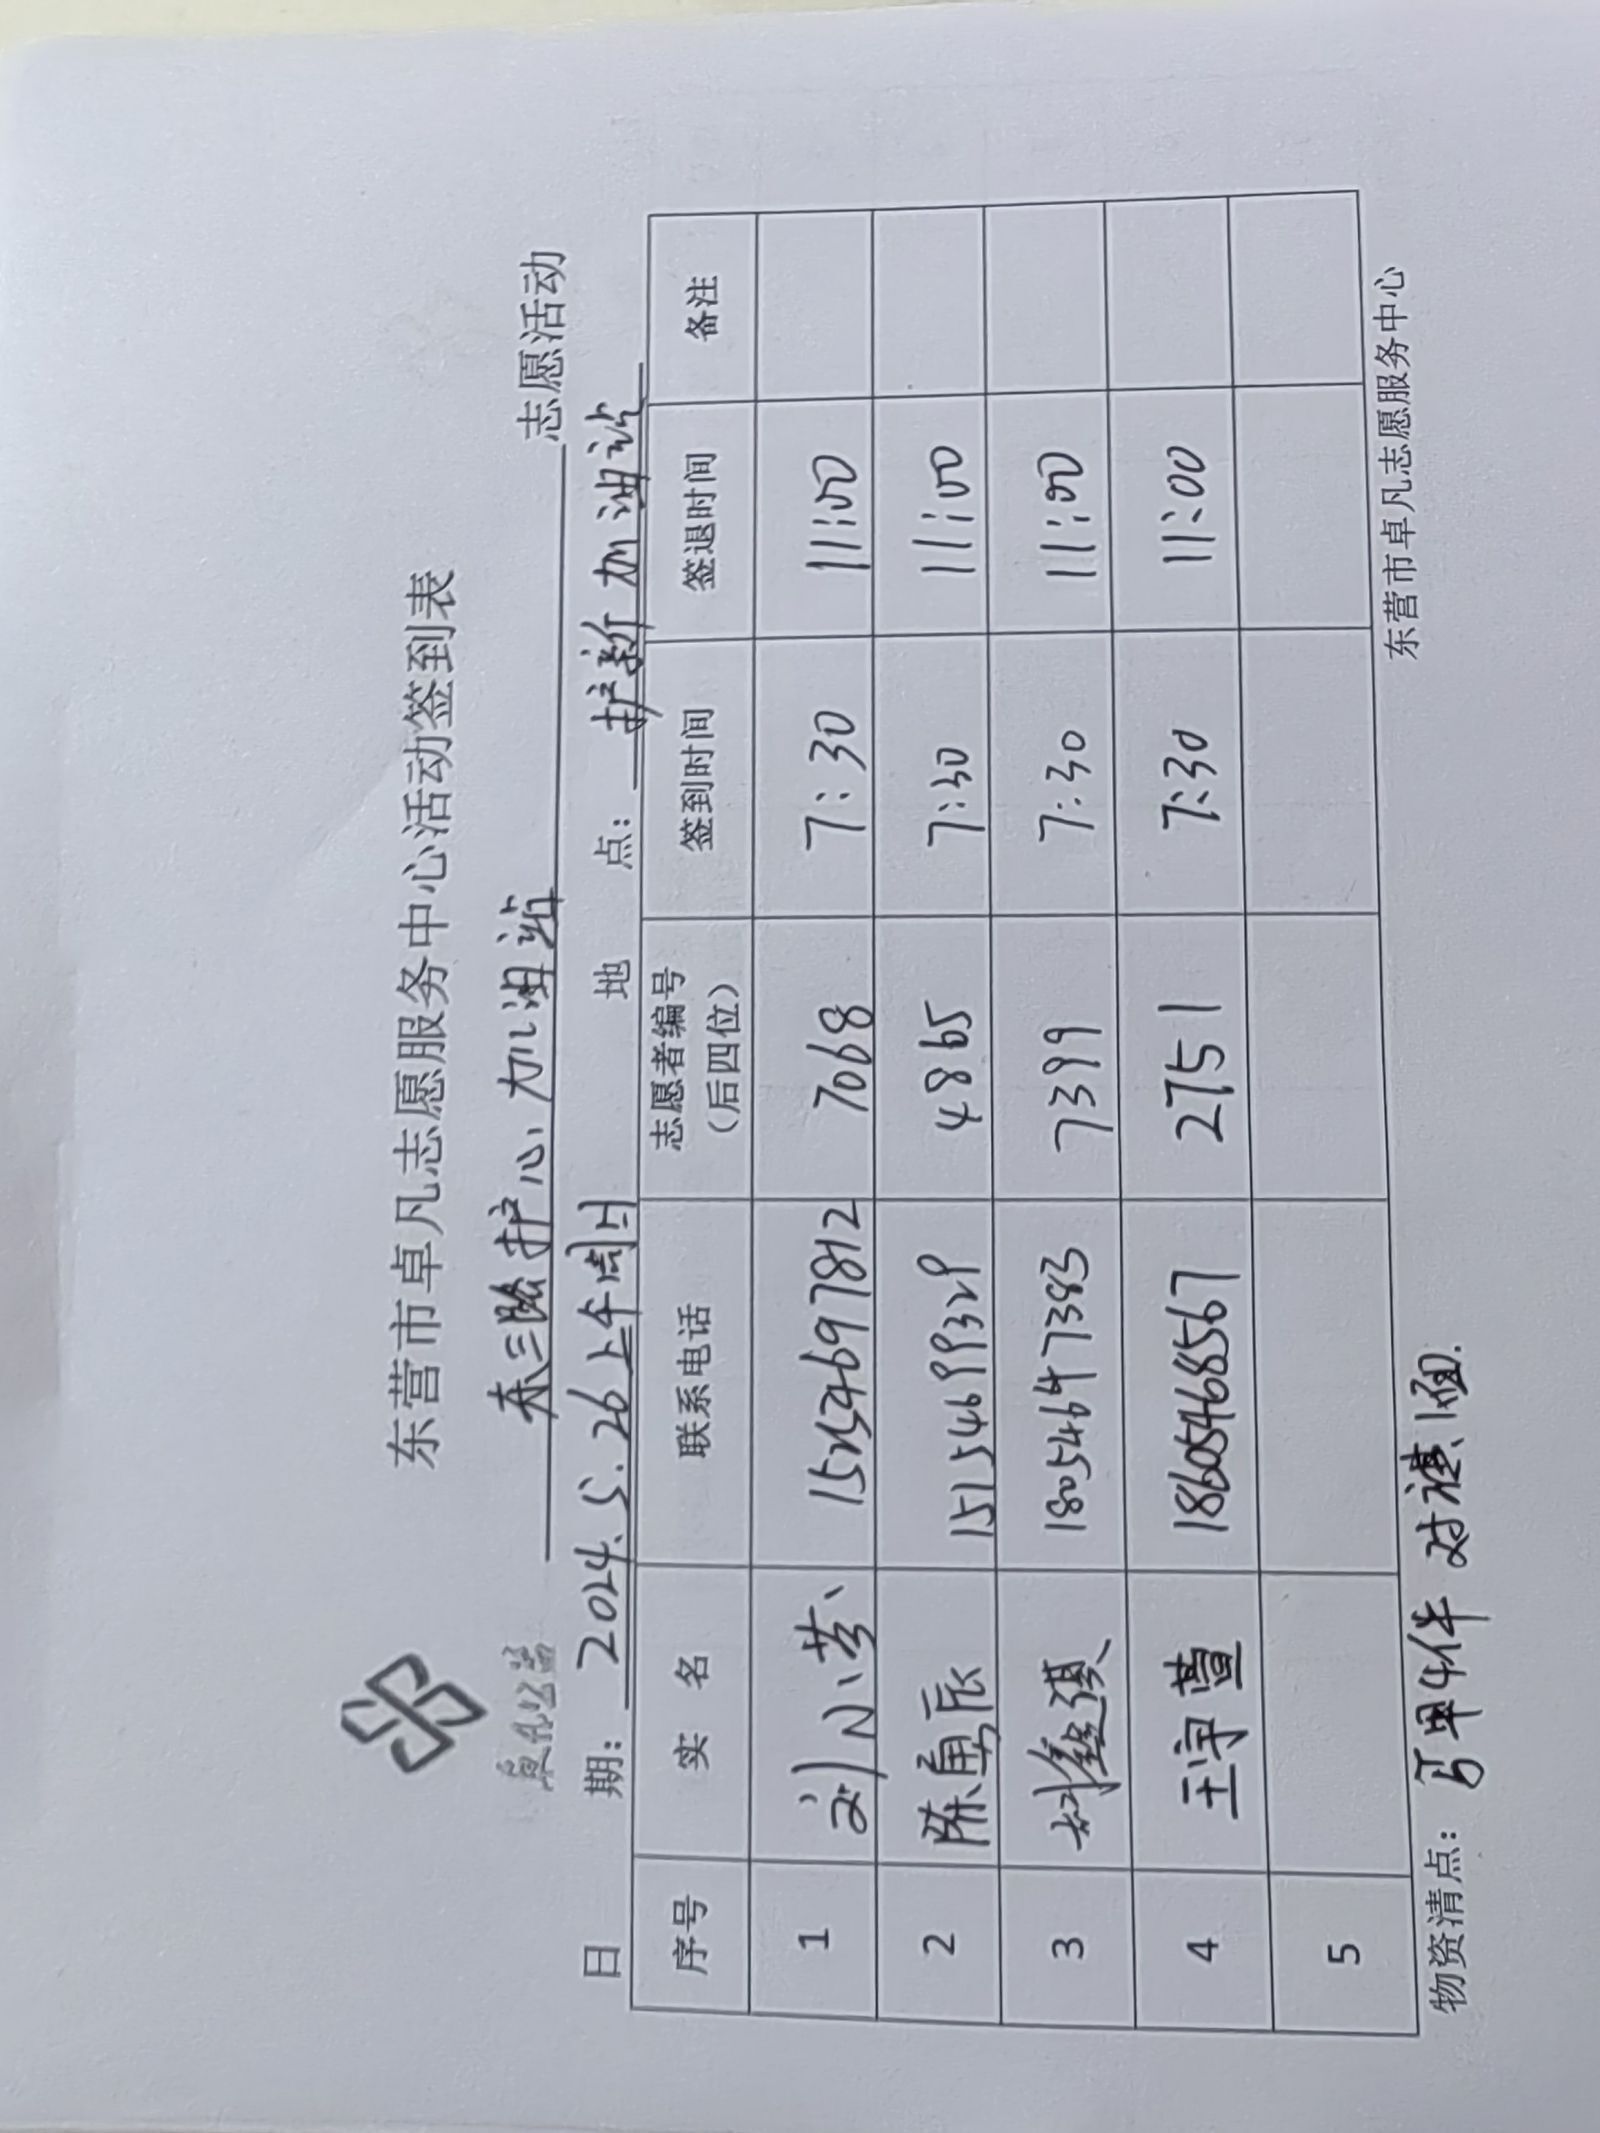 东营市卓凡志愿服务中心活动签到表
东三路护心加油站 志愿活动
日 期：2024.5.26上午周日 地 点：护新加油站
序号 实 名 联系电话 志愿者编号（后四位） 签到时间 签退时间 备注
1 刘小芸 7068 7:30 11:00
2 陈勇辰 15154699329 4865 7:30 11:00
3 刘鑫淇 18054647383 7399 7:30 11:00
4 王宇萱 18605468567 2751 7:30 11:00
5
东营市卓凡志愿服务中心
物资清点：马甲4件